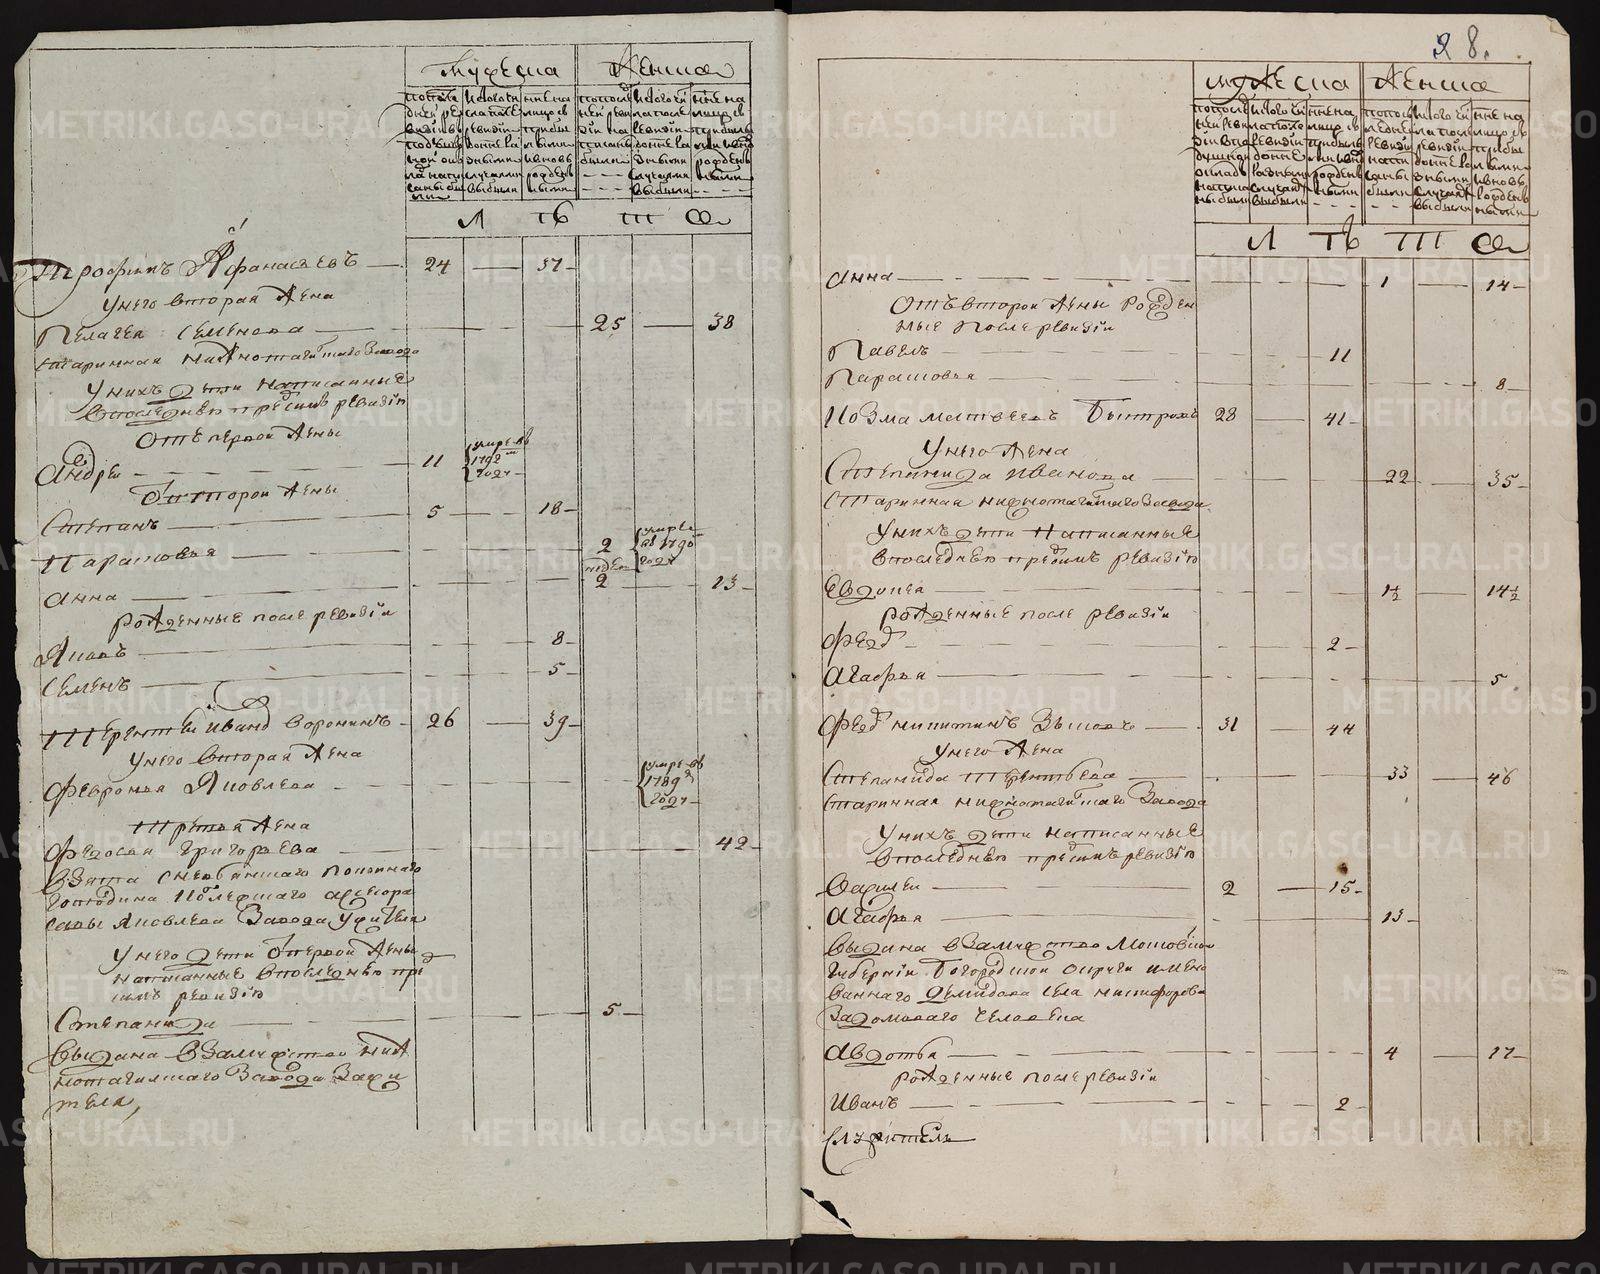 мужеска женска
Л Ѣ Т А
Трофимъ Афанасьевъ 24 37
у него вторая жена
Пелагея Семенова 25 38
старинная нижнотагильскаго завода
у нихъ дети написанные
в последнею пред симъ ревизiю
от первой жены
Андреи 11 умре в 1792 м годе
от второй жены
Степанъ 5 18
Парасковья 2 недели умре в 1790 годе
Анна 2 13
рожденные после ревизiи
Яковъ 8
Семенъ 5
Терентеи Иванов Воронинъ 26 39
у него вторая жена
Февронья Яковлева умре в 1789 м годе
третья жена
Федосья Григорьева 42
взята с невьянскаго покоинаго
господина колежскаго асессора
Савы Яковлева завода у жителя
у него дети от первой жены
написанные в последнею пред
симъ ревизiю
Степанида 5
выдана в замужство ниж
нотагилскаго завода за жи
теля
28.
мужеска женска
Л Ѣ Т А
Анна 1 14
от второй жены рожден
ные после ревизiи
Павелъ 11
Парасковья 8
Козма Матвеевъ Быстровъ 28 41
у него жена
Степанида Иванова 22 35
старинная нижнотагилскаго завода
у нихъ дети написанные
в последнею пред симъ ревизiю
Евдокея 1½ 14½
рожденные после ревизiи
Федоръ 2
Агафья 5
Федоръ Никитинъ Зыковъ 31 44
у него жена
Степанида Терентьева 33 46
старинная нижнотагилскаго завода
у нихъ дети написанные
в последнею пред симъ ревизiю
Василеи 2 15
Агафья 13
выдана в замужство Московской
губернiи Богородской округи имено
ваннаго Демидова села Никифорова
за домоваго человека
Авдотья 4 17
рожденные после ревизiи
Иванъ 2
служитель
METRIKI.GASO-URAL.RU